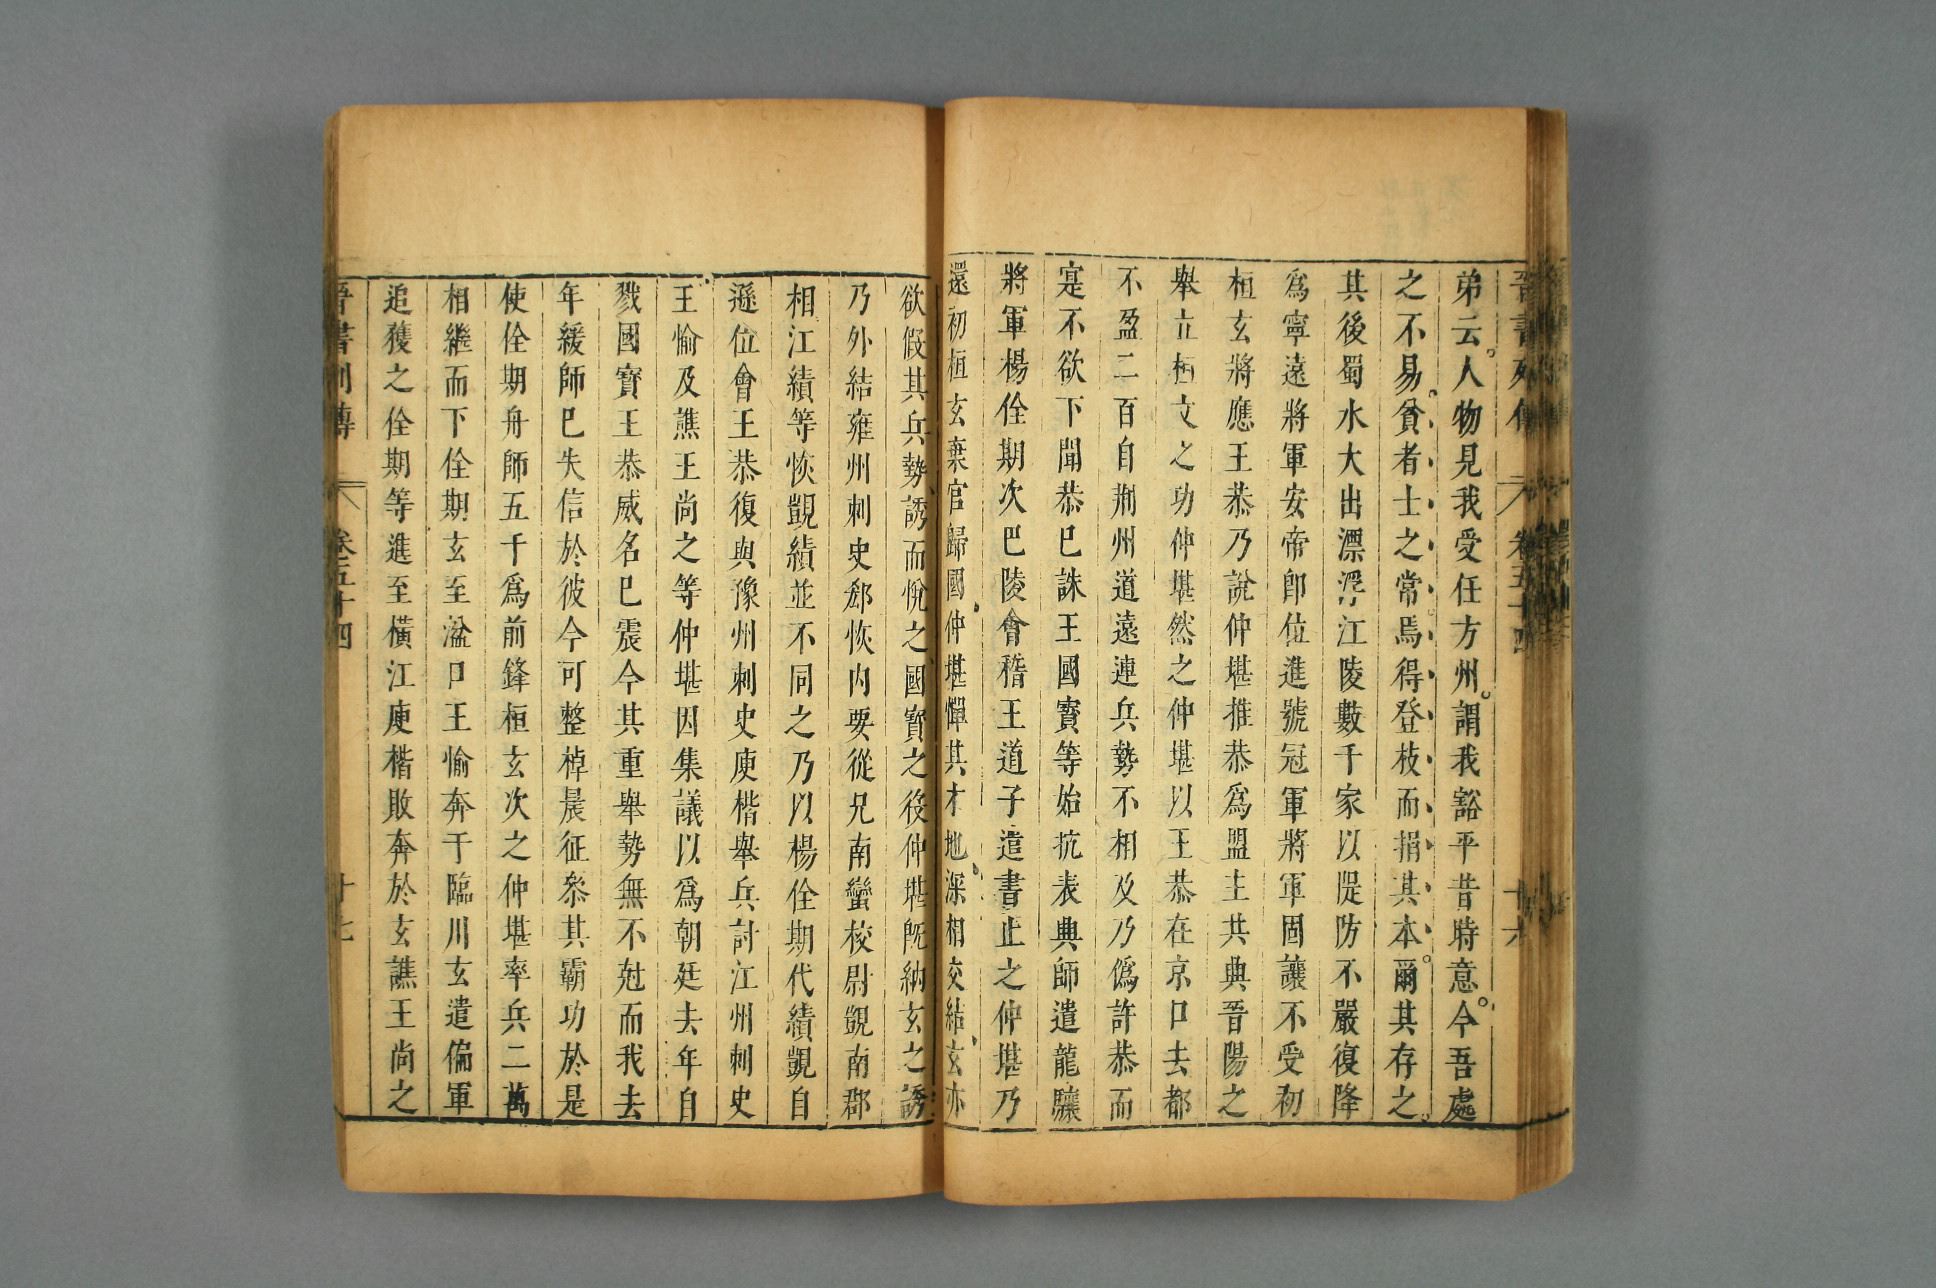 晉書列傳 卷五十四 十六
弟云人物見我受任方州謂我豁平昔時意今吾處
之不易貧者士之常焉得登枝而捐其本爾其存之
其後蜀水大出漂浮江陵數千家以隄防不嚴復降
爲寧遠將軍安帝卽位進號冠軍將軍固讓不受初
桓玄將應王恭乃說仲堪推恭爲盟主共興晉陽之
舉立桓文之功仲堪然之仲堪以王恭在京口去都
不盈二百自荆州道遠連兵勢不相及乃僞許恭而
寔不欲下聞恭巳誅王國寶等始抗表興師遣龍驤
將軍楊佺期次巴陵會稽王道子遣書止之仲堪乃
還初桓玄棄官歸國仲堪憚其才地深相交結玄亦
欲假其兵勢誘而悅之國寶之役仲堪旣納玄之誘
乃外結雍州刺史郄恢內要從兄南蠻校尉覬南郡
相江績等恢覬績並不同之乃以楊佺期代績覬自
遜位會王恭復與豫州刺史庾楷舉兵討江州刺史
王愉及譙王尚之等仲堪因集議以爲朝廷去年自
戮國寶王恭威名巳震今其重舉勢無不尅而我去
年緩師巳失信於彼今可整棹晨征叅其霸功於是
使佺期舟師五千爲前鋒桓玄次之仲堪率兵二萬
相繼而下佺期玄至湓口王愉奔于臨川玄遣偏軍
追獲之佺期等進至橫江庾楷敗奔於玄譙王尚之
晉書列傳 卷五十四 十七